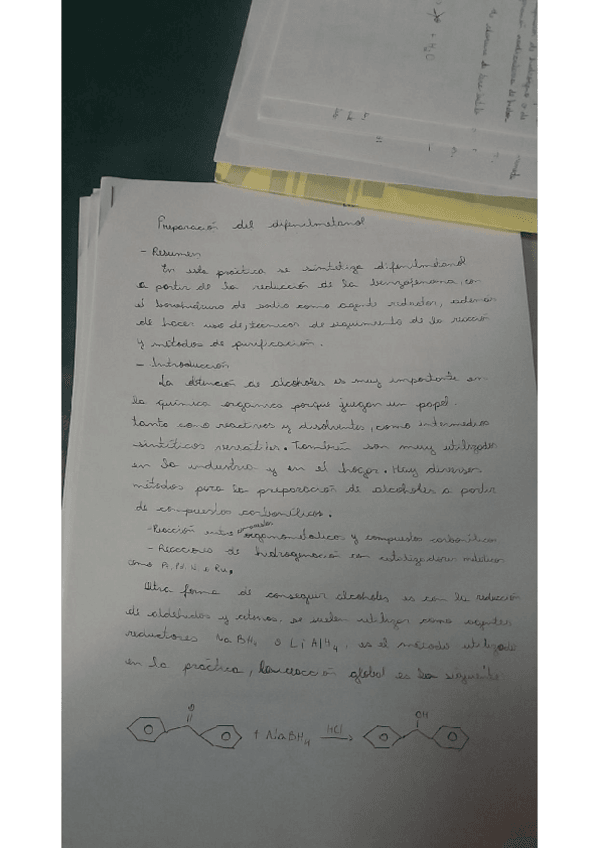 Preparación del difenilmetanol
- Resumen
En esta práctica se sintetiza difenilmetanol
a partir de la reducción de la benzofenona, con
el borohidruro de sodio como agente reductor, además
de hacer uso de, técnicas de seguimiento de la reacción
y métodos de purificación.
- Introducción
La obtención de alcoholes es muy importante en
la química organica porque juegan un papel
tanto como reactivos y disolventes, como intermedios
sintéticos versátiles. También son muy utilizados
en la industria y en el hogar. Hay diversos
métodos para la preparación de alcoholes a partir
de compuestos carbonílicos.
- Reacción entre compuestos organometálicos y compuestos carbonílicos
- Reacciones de hidrogenación con catalizadores metálicos
como Pd, Ni o Ru.
Otra forma de conseguir alcoholes es con la reducción
de aldehídos y cetonas, se suelen utilizar como agentes
reductores NaBH4 o LiAlH4, es el método utilizado
en la práctica, la reacción global es la siguiente
O
+ NaBH4 HCl OH
+ H2O